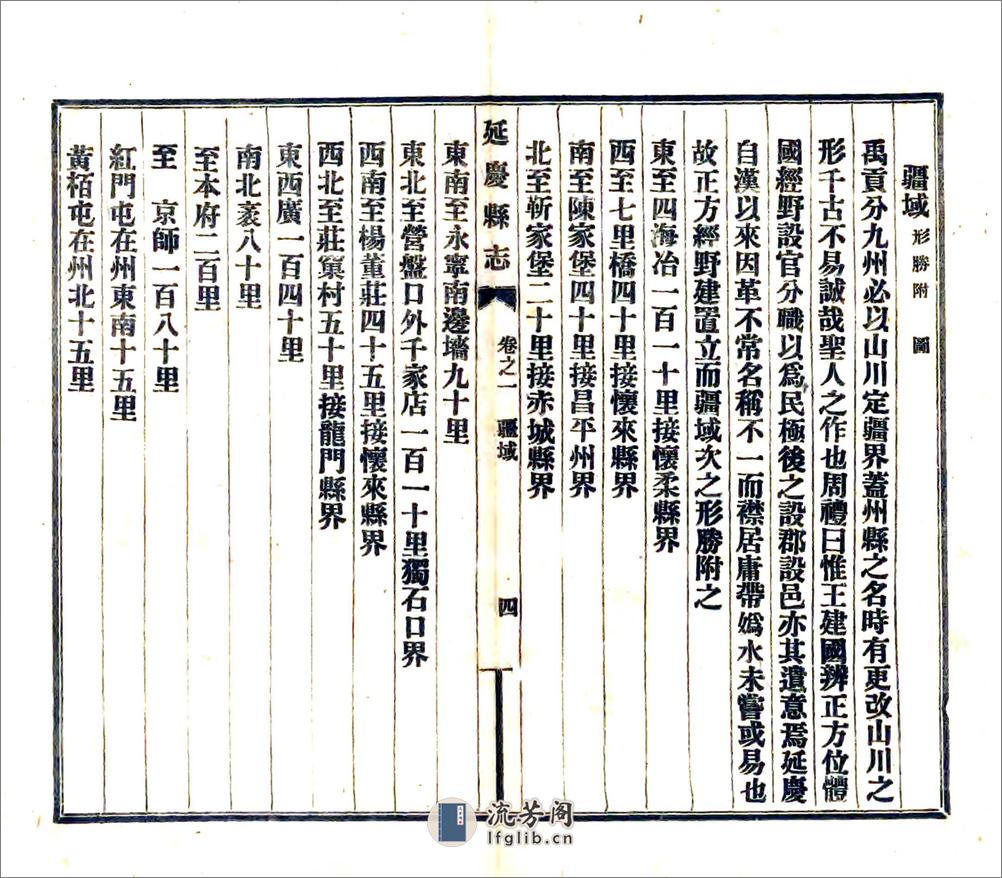 疆域 形勝附 圖
禹貢分九州必以山川定疆界蓋州縣之名時有更改山川之
形千古不易誠哉聖人之作也周禮曰惟王建國辨正方位體
國經野設官分職以爲民極後之設郡設邑亦其遺意焉延慶
自漢以來因革不常名稱不一而襟居庸帶嬀水未嘗或易也
故正方經野建置立而疆域次之形勝附之
東至四海冶一百一十里接懷柔縣界
西至七里橋四十里接懷來縣界
南至陳家堡四十里接昌平州界
北至靳家堡二十里接赤城縣界
延慶縣志 卷之一 疆域 四
東南至永寧南邊墻九十里
東北至營盤口外千家店一百一十里獨石口界
西南至楊董莊四十五里接懷來縣界
西北至莊窠村五十里接龍門縣界
東西廣一百四十里
南北袤八十里
至本府二百里
至 京師一百八十里
紅門屯在州東南十五里
黃栢屯在州北十五里
流芳阁
lfglib.cn